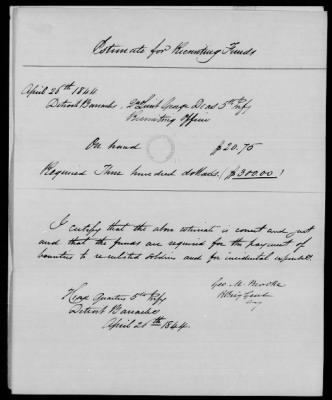 Estimate for Recruiting Funds
April 26th 1844
Detroit Barracks. 2d Lieut George Deas 5th Infy
Recruiting Officer
On hand $20.75
Required Three hundred dollars ($300.00)
I certify that the above estimate is correct and just
and that the funds are required for the payment of
bounties to re-enlisted soldiers and for incidental expenses.
Geo. M. Brooke
B Brig Genl
Head Quarters 5th Infy
Detroit Barracks
April 26th 1844.